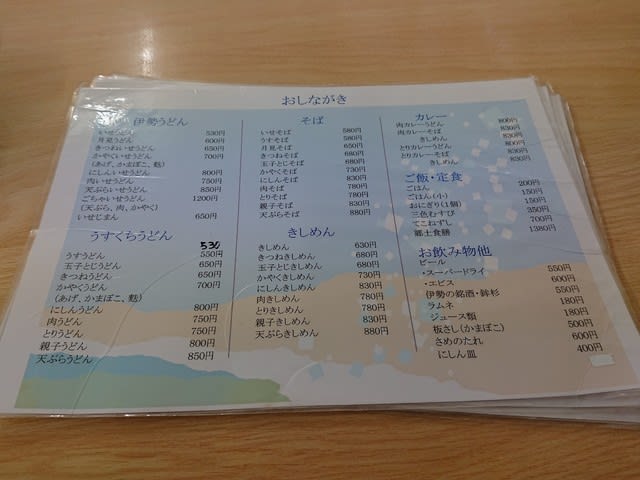 おしながき
伊勢うどん
いせうどん 530円
月見うどん 600円
きつねいせうどん 650円
かやくいせうどん 700円
(あげ、かまぼこ、麩)
にしんいせうどん 800円
肉いせうどん 750円
天ぷらいせうどん 850円
ごちゃいせうどん 1200円
(天ぷら、肉、かやく)
いせじまん 650円
うすくちうどん
530
うすうどん 550円
玉子とじうどん 650円
きつねうどん 650円
かやくうどん 700円
(あげ、かまぼこ、麩)
にしんうどん 800円
肉うどん 750円
とりうどん 750円
親子うどん 800円
天ぷらうどん 850円
そば
いせそば 580円
うすそば 580円
月見そば 650円
きつねそば 680円
玉子とじそば 680円
かやくそば 730円
にしんそば 830円
肉そば 780円
とりそば 780円
親子そば 830円
天ぷらそば 880円
きしめん
きしめん 630円
きつねきしめん 680円
玉子とじきしめん 680円
かやくきしめん 730円
にしんきしめん 830円
肉きしめん 780円
とりきしめん 780円
親子きしめん 830円
天ぷらきしめん 880円
カレー
肉カレーうどん 800円
肉カレーそば 830円
きしめん 830円
とりカレーうどん 800円
とりカレーそば 830円
きしめん 830円
ご飯・定食
ごはん 200円
ごはん(小) 150円
おにぎり(1個) 150円
三色むすび 350円
てこねずし 700円
郷土食膳 1380円
お飲み物他
ビール
・スーパードライ 550円
・エビス 600円
伊勢の銘酒・鉾杉 550円
ラムネ 180円
ジュース類 180円
板さし(かまぼこ) 500円
さめのたれ 600円
にしん皿 400円